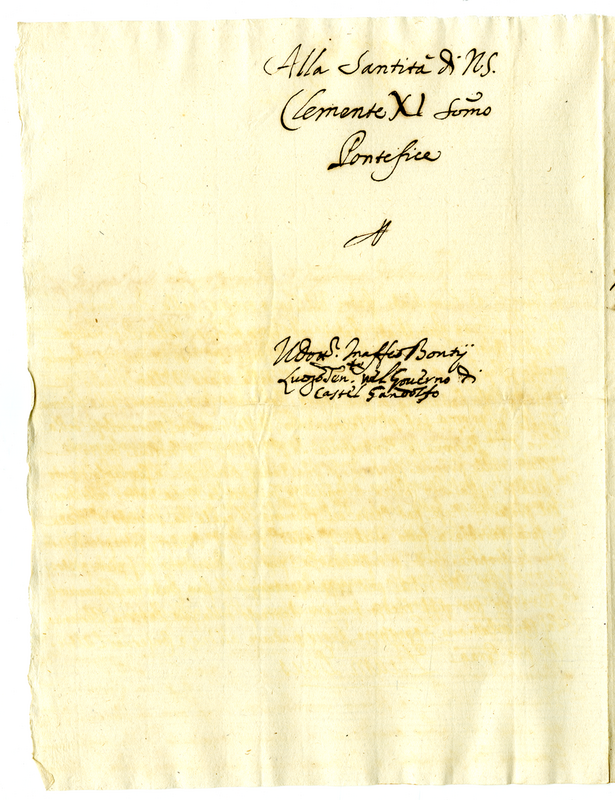 Alla Santità di NS.
Clemente XI Som̃o
Pontefice
Il Dott.r Maffeo Bontij
Luogoten.te nel Governo di
Castel Gandolfo